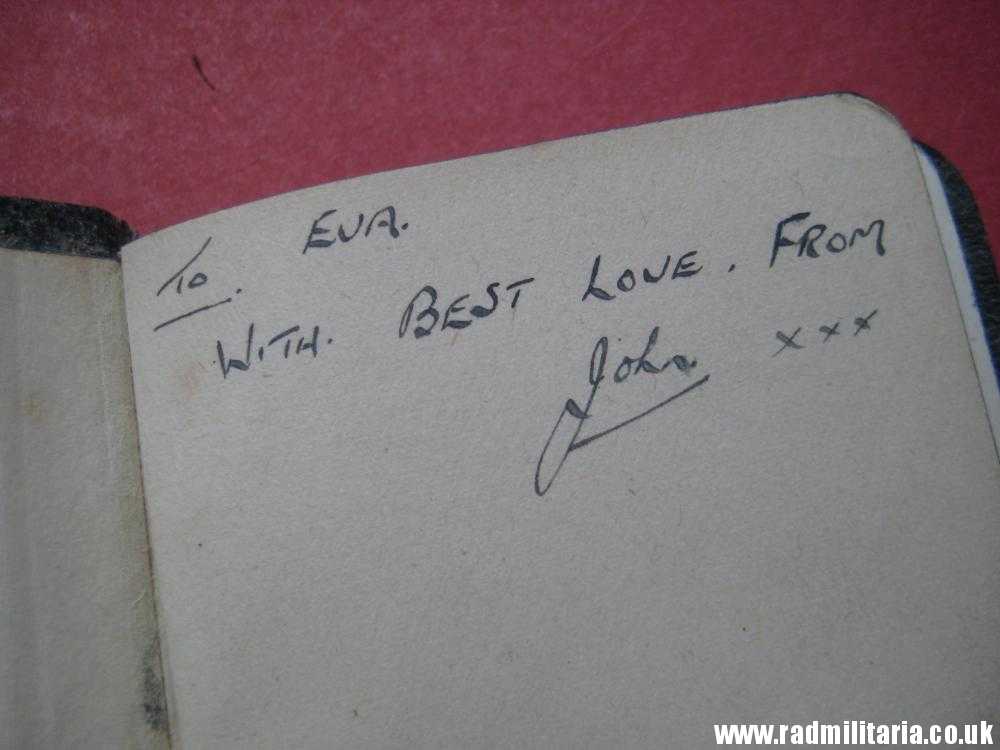 To. EVA.
WITH. BEST LOVE. FROM
John. x x x
www.radmilitaria.co.uk